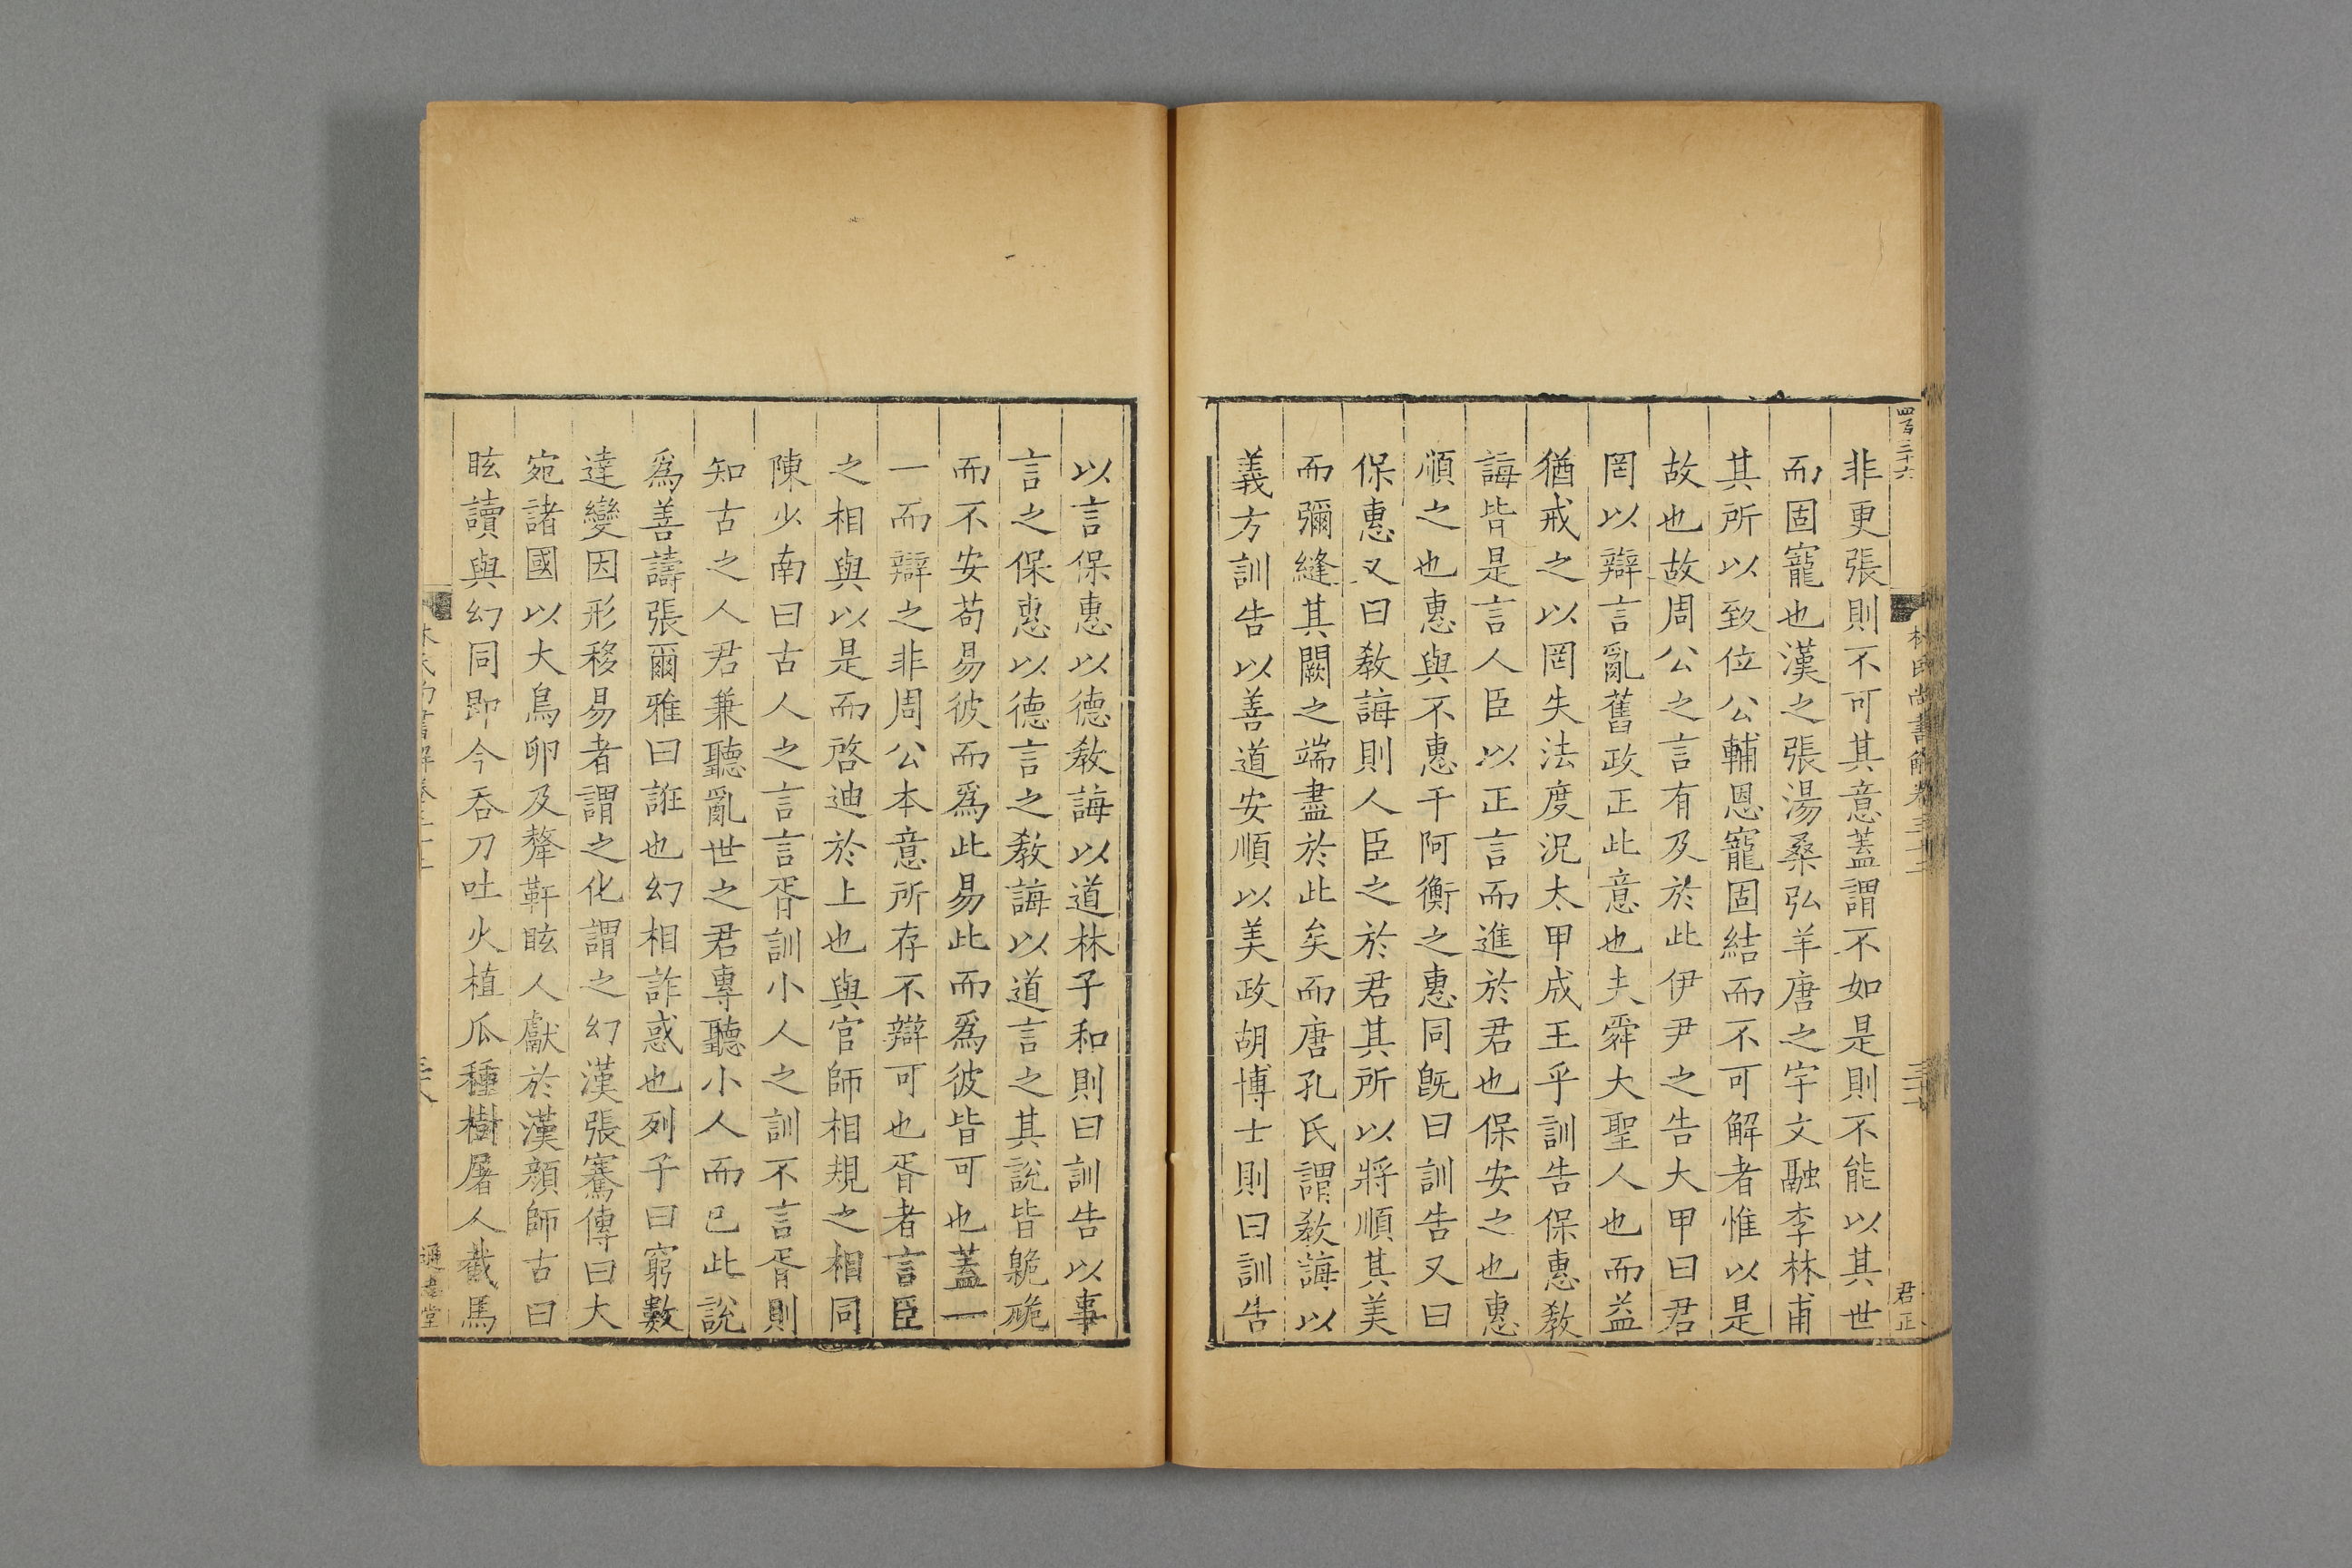 四百二十六
林氏尚書解卷三十二
君正
非更張則不可其意蓋謂不如是則不能以其世
而固寵也漢之張湯桑弘羊唐之宇文融李林甫
其所以致位公輔恩寵固結而不可解者惟以是
故也故周公之言有及於此伊尹之告大甲曰君
罔以辯言亂舊政正此意也夫舜大聖人也而益
猶戒之以罔失法度況太甲成王乎訓告保惠教
誨皆是言人臣以正言而進於君也保安之也惠
順之也惠與不惠于阿衡之惠同旣曰訓告又曰
保惠又曰敎誨則人臣之於君其所以將順其美
而彌縫其闕之端盡於此矣而唐孔氏謂敎誨以
義方訓告以善道安順以美政胡博士則曰訓告
以言保惠以德敎誨以道林子和則曰訓告以事
言之保惠以德言之敎誨以道言之其說皆臲卼
而不安苟易彼而爲此易此而爲彼皆可也蓋一
一而辯之非周公本意所存不辯可也胥者言臣
之相與以是而啓迪於上也與官師相規之相同
陳少南曰古人之言言胥訓小人之訓不言胥則
知古之人君兼聽亂世之君專聽小人而已此說
爲善譸張爾雅曰誑也幻相詐惑也列子曰窮數
達變因形移易者謂之化謂之幻漢張騫傳曰大
宛諸國以大鳥卵及犛靬眩人獻於漢顔師古曰
眩讀與幻同即今吞刀吐火植瓜種樹屠人截馬
通志堂